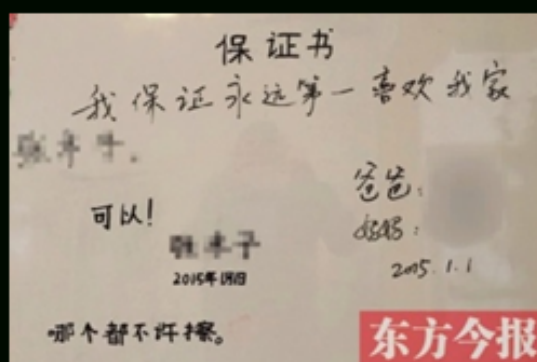 保证书
我保证永远第一喜欢我家
爸爸:
可以！
妈妈:
2015年1月1日
2015.1.1
哪个都不许擦。
东方今报